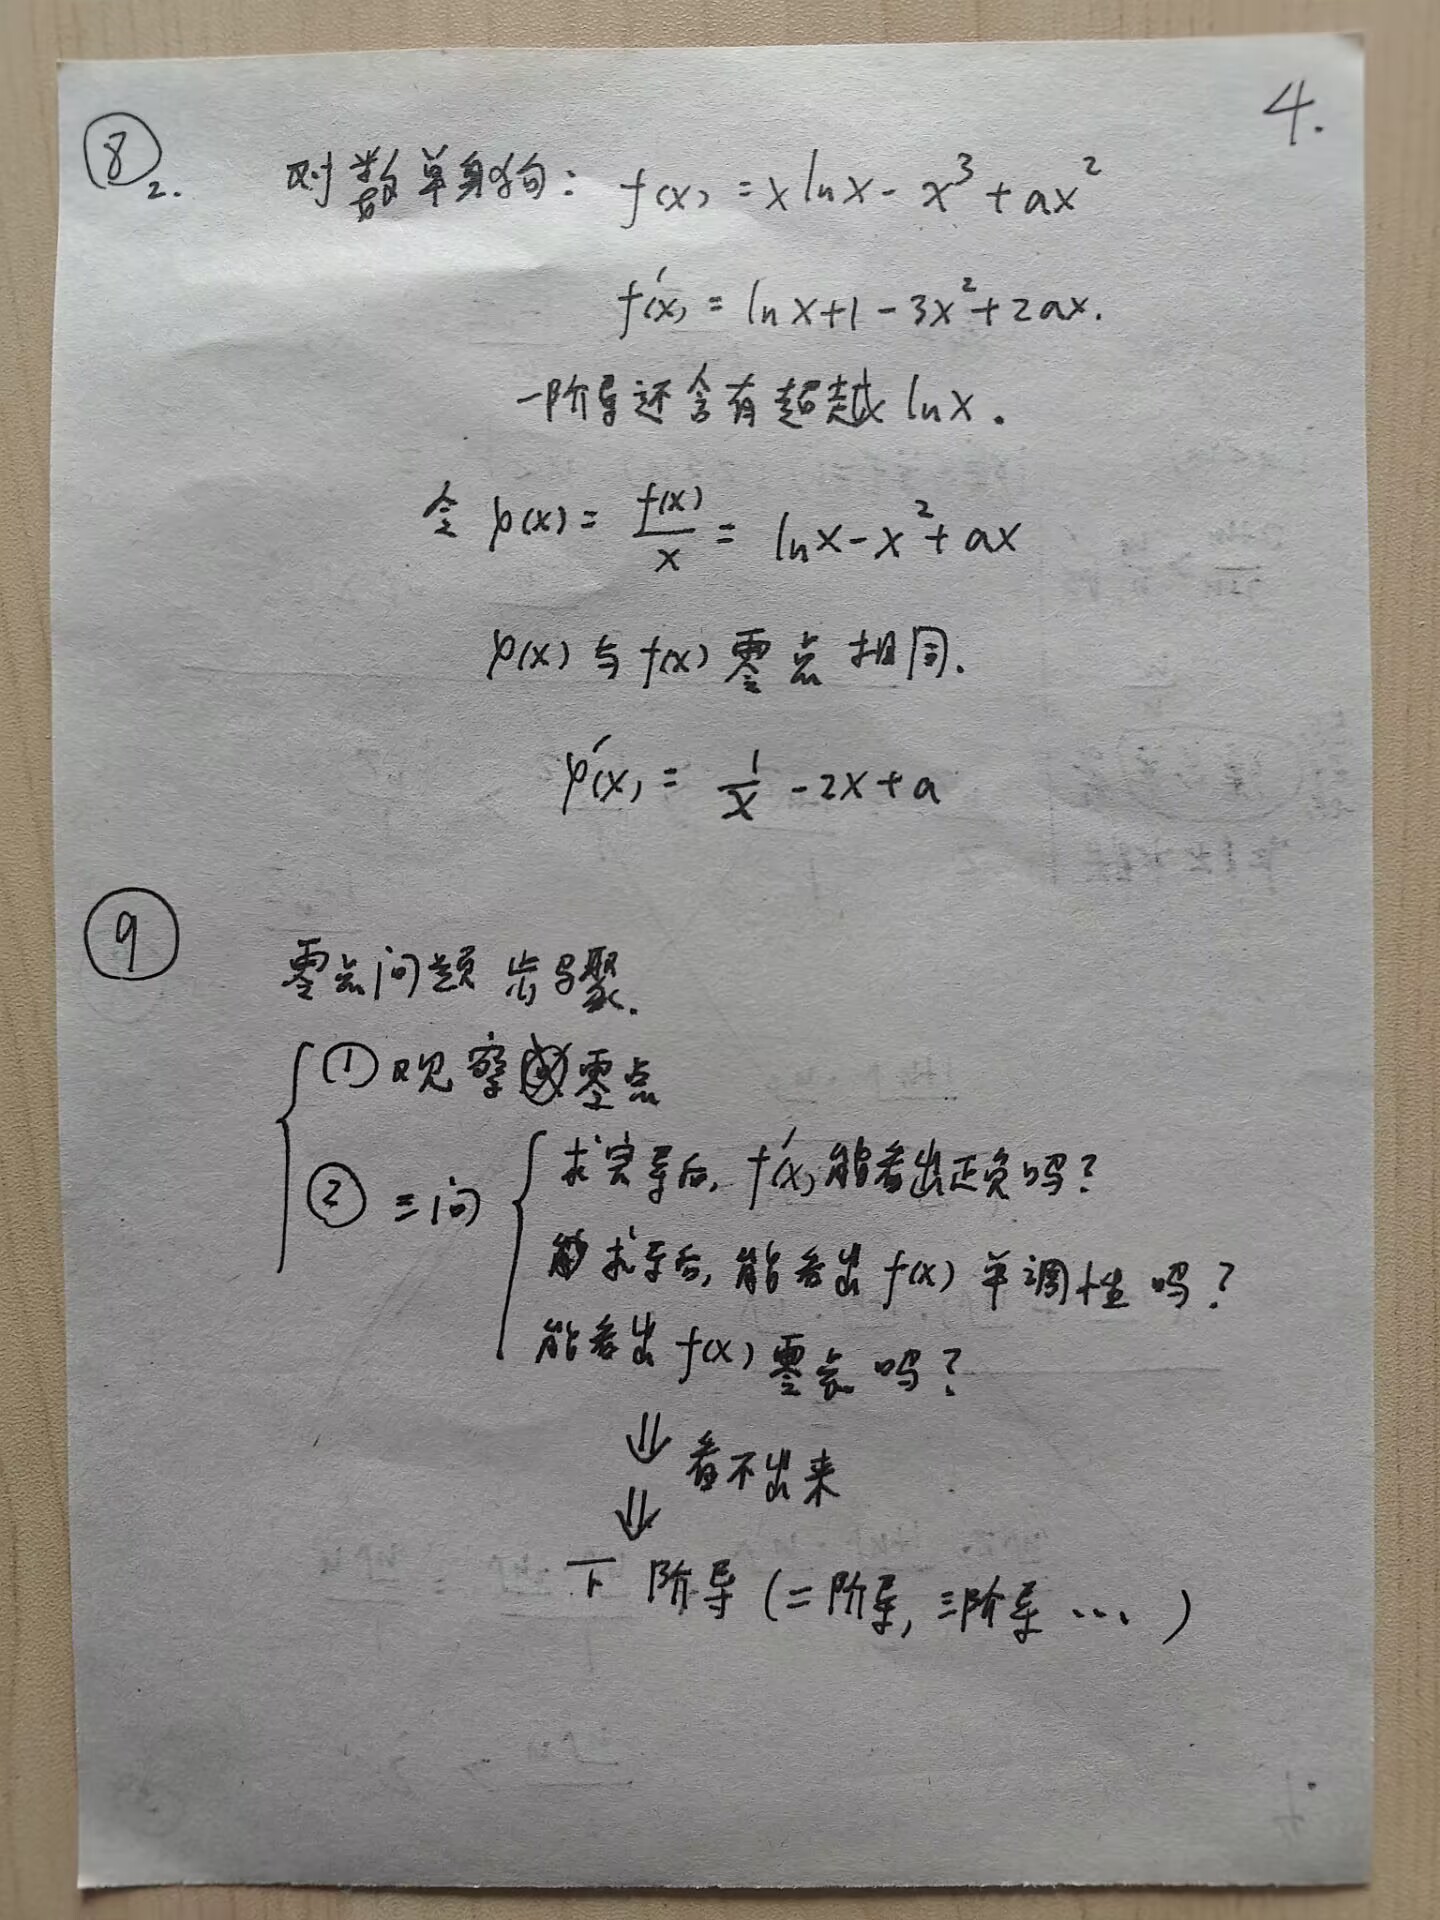 4.
⑧2. 对数单身狗: f(x) = x ln x - x³ + ax²
f'(x) = ln x + 1 - 3x² + 2ax.
一阶导还含有超越 ln x.
令 φ(x) = f(x)/x = ln x - x² + ax
φ(x) 与 f(x) 零点相同.
φ'(x) = 1/x - 2x + a
⑨ 零点问题步骤.
① 观察零点
② 三问
求完导后, f'(x) 能看出正负吗?
求导后, 能看出 f(x) 单调性吗?
能看出 f(x) 零点吗?
⇓ 看不出来
⇓
下阶导 (二阶导, 三阶导 ...)